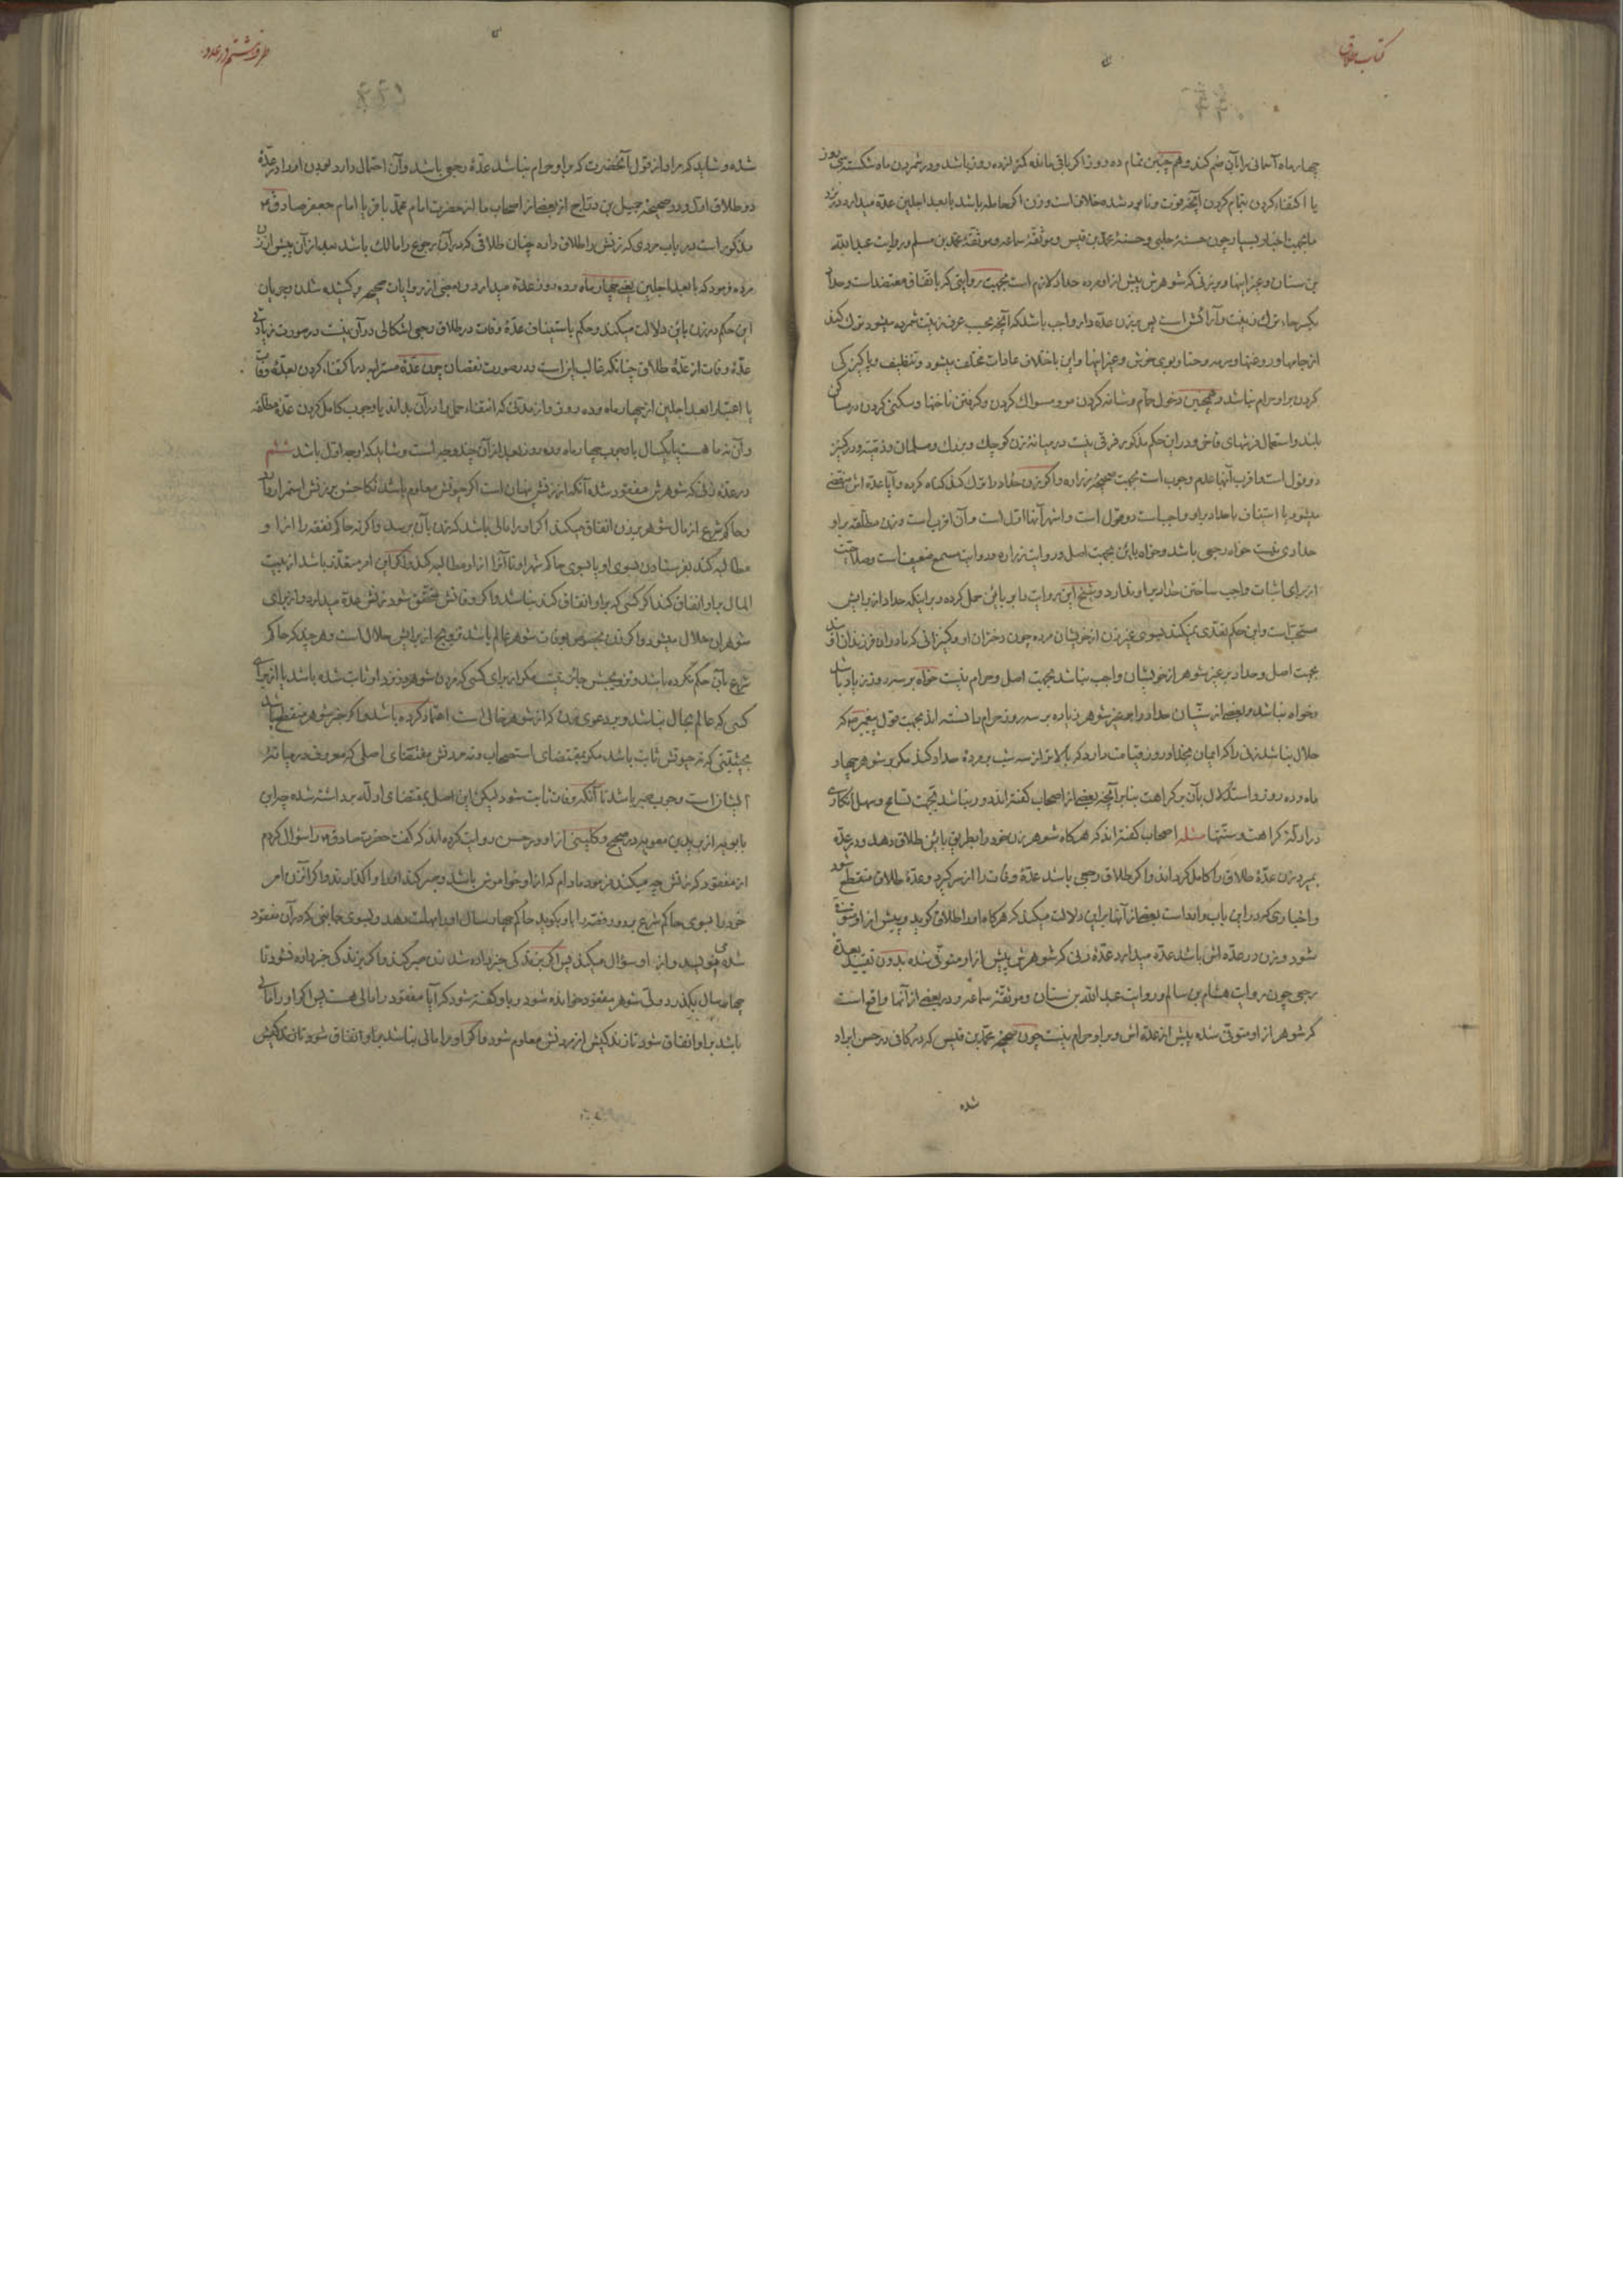 کتاب طلاق
چهار ماه آسمانی را بآن ضم کند و همچنین تمام ده روز را اگر باقی مانده کمتر از ده روز باشد و در شمردن ماه شکسته سی روز
یا اکتفاء کردن بتمام کردن آنچه فوت شده خلاف است و زن اگر حامله باشد بابعد اجلین عده میدارد نزد
ما بجهت اخبار بسیار چون حسنهٔ حلبی و حسنهٔ محمد بن قیس و موثقهٔ سماعه و موثقهٔ محمد بن مسلم و روایت عبد الله
بن سنان و غیر اینها و بر زنی که شوهرش پیش از او مرده حداد لازم است بجهت روایتی که باتفاق معتضد است و حداد
بکسر حاء ترک زینت و آرایش است پس بر زن عده دار واجب باشد که آنچه بحسب عرف زینت شمرده میشود ترک کند
از جامها و روغنها و سرمه و حنا و بوی خوش و غیر اینها و این باختلاف عادات مختلف میشود و تنظیف و پاکیزگی
کردن بر او حرام نباشد و همچنین دخول حمام و شانه کردن مو و مسواک کردن و گرفتن ناخنها و سکنی کردن در مساکن
بلند و استعمال فرشهای فاخر و در این حکم مذکور فرقی نیست در میانه زن کوچک و بزرک و مسلمان و ذمیه و در کنیز
دو قول است و اقرب آنها عدم وجوب است بجهت صحیحهٔ زراره و اگر زن حداد را ترک کند گناه کرده و آیا عده اش منقضی
میشود یا استیناف با حداد بر او واجب است دو قول است و اشهر آنها اول است و آن اقرب است و زن مطلقه بر او
حدادی نیست خواه رجعی باشد و خواه باین بجهت اصل و روایت زراره و روایت مسمع ضعیف است و صلاحیت
از برای اثبات واجب ساختن حداد بر او ندارد و شیخ این روایت را بر باین حمل کرده و بر اینکه حداد از برایش
مستحب است و این حکم تعدی نمیکند بسوی غیر زن از خویشان مرده چون دختران او و کنیزانی که مادران فرزندان او باشند
بجهت اصل و حداد بر غیر شوهر از خویشان واجب نباشد بجهت اصل و حرام نیست خواه بر سه روز زیاد باشد
و خواه نباشد و بعضی از سنیان حداد را بر غیر شوهر زیاده بر سه روز حرام دانسته اند بجهت قول پیغمبر ص که
حلال نباشد زنی را که ایمان بخدا و روز قیامت دارد که بالاتر از سه شب بر مردهٔ حداد کند مگر بر شوهر چهار
ماه و ده روز و استدلال بآن بر کراهت بنا بر آنچه بعضی از اصحاب گفته اند دور نباشد بجهت تسامح و سهل انگاری
در ادلهٔ کراهت و سنتها مسئله اصحاب گفته اند که هرگاه شوهر زن خود را بطریق باین طلاق دهد و در عده
بمیرد زن عدهٔ طلاق را کامل گرداند و اگر طلاق رجعی باشد عدهٔ وفات را از سر گیرد و عدهٔ طلاق منقطع شود
و اخباری که در این باب وارد است بعضی از آنها بر این دلالت میکند که هرگاه او را طلاق گوید و پیش از او متوفی
شود و زن در عده اش باشد عده میدارد عدهٔ زنی که شوهرش پیش از او متوفی شده بدون تقیید بعدهٔ
رجعی چون روایت هشام بن سالم و روایت عبد الله بن سنان و موثقهٔ سماعه و در بعضی از آنها واقع است
که شوهر از او متوفی شده پیش از عده اش و بر او حرام نیست چون صحیحهٔ محمد بن قیس که در کافی در حسن ایراد
شده
طرف ششم در عدد
شده و شاید که مراد از قول آنحضرت که بر او حرام نباشد عدهٔ رجعی باشد و آن احتمال دارد بودن او را در عدهٔ
دو طلاق اول و در صحیحهٔ جمیل بن دراج از بعضی از اصحاب ما از حضرت امام محمد باقر یا امام جعفر صادق ع
مذکور است در باب مردی که زنش را طلاق داده چنان طلاقی که در آن رجوع را مالک باشد بعد از آن پیش از زن
مرده فرمود که بابعد اجلین یعنی چهار ماه و ده روز عده میدارد و بعضی از روایات صحیحه بر کشیده شدن و جریان
این حکم در زن باین دلالت میکند و حکم باستیناف عدهٔ وفات در طلاق رجعی اشکالی در آن نیست در صورت زیادتی
عدهٔ وفات از عدهٔ طلاق چنانکه غالب این است و در صورت نقصان چون عدهٔ مسترابه در اکتفاء کردن بعدهٔ وفات
یا اعتبار ابعد اجلین از چهار ماه و ده روز و از مدتی که انتفاء حمل را در آن بداند یا وجوب کامل کردن عدهٔ مطلقه
و آن نه ماهست یا یکسال یا وجوب چهار ماه و ده روز بعد از آن چند وجه است و شاید که اوجه اول باشد ششم
در عدهٔ زنی که شوهرش مفقود شده آنکه از زنش پنهان است اگر حیوتش معلوم باشد نکاحش بر زنش استمرار دارد
و حاکم شرع از مال شوهر بر زن انفاق میکند اگر او را مالی باشد که زن بآن برسد و اگر نه حاکم نفقه را از او
مطالبه کند بفرستادن بسوی او یا بسوی حاکم شهر او تا آنرا از او مطالبه کند و اگر این امر متعذر باشد از بیت
المال بر او انفاق کند اگر کسی که بر او انفاق کند نباشد و اگر وفاتش متحقق شود زنش عده میدارد و از برای
شوهران حلال میشود و اگر زن بخصوص بوفات شوهر عالم باشد تزویج از برایش حلال است و هر چند که حاکم
شرع بآن حکم نکرده باشد و تزویجش جائز نیست مگر از برای کسی که مردن شوهر در نزد او ثابت شده باشد یا از برای
کسی که عالم بحال نباشد و بر دعوی زن که از شوهر خالی است اعتماد کرده باشد و اگر خبر شوهر منقطع باشد
بحیثیتی که نه حیوتش ثابت باشد مگر بمقتضای استصحاب و نه مردنش مقتضای اصلی که معروف در میانهٔ
ایشان است وجوب صبر باشد تا آنکه وفات ثابت شود لیکن این اصل بمقتضای ادله برداشته شده چه ابن
بابویه از برید بن معویه در صحیح و کلینی از او در حسن روایت کرده اند که گفت حضرت صادق ع را سؤال کردم
از مفقود که زنش چه میکند فرمود مادام که از او خاموش باشد و صبر کند او را واگذارند و اگر آن زن امر
خود را بسوی حاکم شرع برد و رفته را باو بگوید حاکم چهار سال او را مهلت دهد و بسوی جانبی که در آن مفقود
شده مینویسد و از او سؤال میکند پس اگر بزندگی خبر داده شد زن صبر کند و اگر بزندگی خبر داده نشود تا
چهار سال بگذرد ولی شوهر مفقود خوانده شود و باو گفته شود که آیا مفقود را مالی هست پس اگر او را مالی
باشد بر او انفاق شود تا زندگیش از مردنش معلوم شود و اگر او را مالی نباشد بر او انفاق شود تا زندگیش